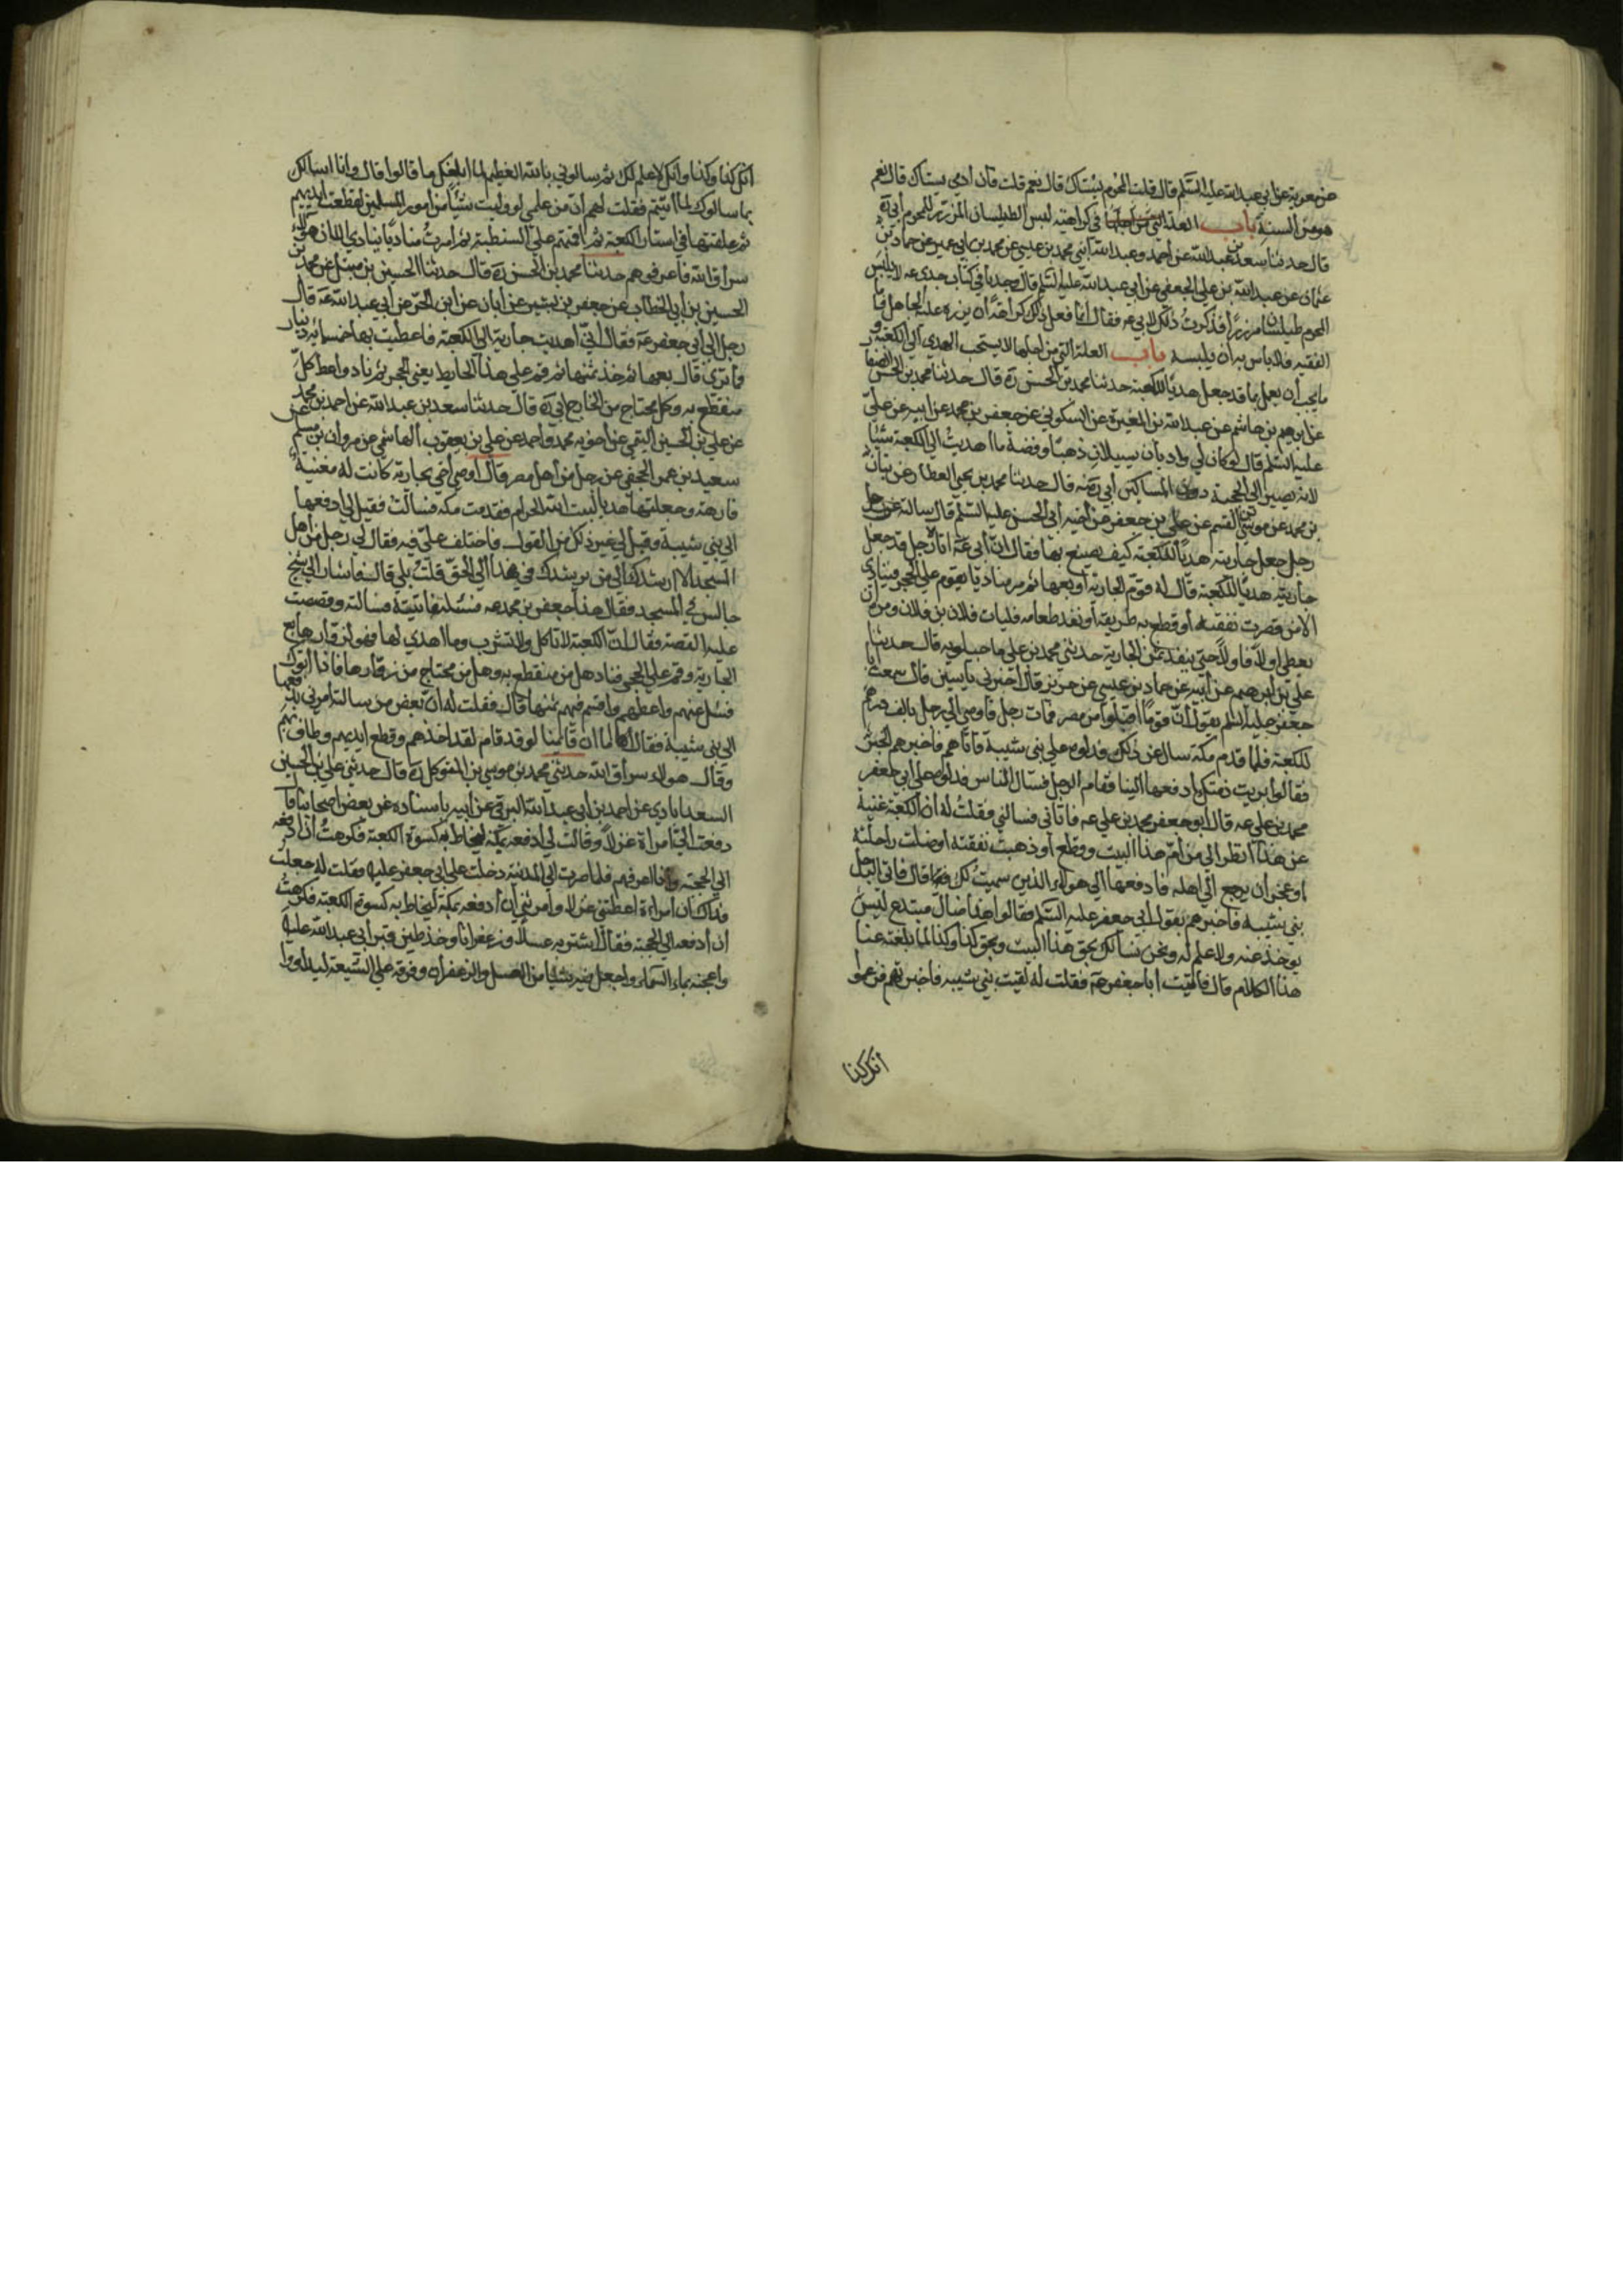 عن معوية عن ابي عبد الله عليه السلم قال قلت المحرم يستاك قال نعم قلت فان ادمى يستاك قال نعم
هو من السنة باب العلة التي من اجلها في كراهية لبس الطيلسان المزرر للمحرم أبي ره
قال حدثنا سعد بن عبد الله عن احمد وعبد الله ابني محمد بن عيسى عن محمد بن ابي عمير عن حماد بن
عثمان عن عبيد الله بن علي الحلبي عن ابي عبد الله عليه السلم قال وجدنا في كتاب جدي عه لا يلبس
المحرم طيلسانا مزررا فذكرت ذلك لابي عه فقال انما فعل ذلك كراهة أن يزره عليه الجاهل فأما
الفقيه فلا باس به ان يلبسه باب العلة التي من اجلها لا يستحب الهدي الى الكعبة و
ما يجب أن يعمل بما قد جعل هديا للكعبة حدثنا محمد بن الحسن ره قال حدثنا محمد بن الحسن الصفار
عن ابرهيم بن هاشم عن عبد الله بن المغيرة عن السكوني عن جعفر بن محمد عن ابيه عن علي
عليه السلم قال لو كان لي واديان يسيلان ذهبا وفضة ما اهديت الى الكعبة شيئا
لانه يصير الى الحجبة دون المساكين أبي رضه قال حدثنا محمد بن يحيى العطار عن بنان
بن محمد عن موسى بن القسم عن علي بن جعفر عن اخيه أبي الحسن عليه السلم قال سالته عن رجل
رجل جعل جاريته هديا للكعبة كيف يصنع بها فقال ان أبي عه اتاه رجل قد جعل
جاريته هديا للكعبة فقال له قوم الجارية أو بعها ثم مر مناديا يقوم على الحجر فينادي
الا من قصرت نفقته أو قطع به طريقه أو نفد طعامه فليات فلان بن فلان ومره أن
يعطي اولا فاولا حتى ينفد ثمن الجارية حدثني محمد بن علي ماجيلويه قال حدثنا
علي بن ابرهيم عن أبيه عن حماد بن عيسى عن حريز قال اخبرني ياسين قال سمعت أبا
جعفر عليه السلم يقول أن قوما أقبلوا من مصر فمات رجل فاوصى الى رجل بالف درهم
للكعبة فلما قدم مكة سال عن ذلك فدلوه على بني شيبة فأتاهم فاخبرهم الخبر
فقالوا بريت ذمتك ادفعها الينا فقام الرجل فسال الناس فدلوه على ابي جعفر
محمد بن علي عه قال ابو جعفر محمد بن علي عه فاتاني فسالني فقلت له ان الكعبة غنية
عن هذا انظر الى من أم هذا البيت وقطع أو ذهبت نفقته او ضلت راحلته
او عجز أن يرجع الى اهله فادفعها الى هولاء الذين سميت لك قال فاتى الرجل
بني شيبة فاخبرهم بقول ابي جعفر عليه السلم فقالوا هذا ضال مبتدع ليس
يوخذ عنه ولا علم له ونحن نسالك بحق هذا البيت وبحق كذا وكذا لما بلغته عنا
هذا الكلام قال فاتيت ابا جعفر عه فقلت له لقيت بني شيبه فاخبرتهم فزعموا
أنك كذا
انك كذا وكذا وانك لا علم لك ثم سالوني بالله العظيم لما ابلغك ما قالوا قال وانا اسالك
بما سالوك لما اتيتهم فقلت لهم أن من علمي لو وليت شيئا من أمور المسلمين لقطعت ايديهم
ثم علقتها في استار الكعبة ثم اقمتهم على المصطبة ثم امرت مناديا ينادي الا ان هولاء
سراق الله فاعرفوهم حدثنا محمد بن الحسن ره قال حدثنا الحسين بن متيل عن محمد بن
الحسين بن أبي الخطاب عن جعفر بن بشير عن أبان عن ابن الحر عن أبي عبد الله عه قال
رجل الى أبي جعفر عه فقال أني اهديت جارية الى الكعبة فاعطيت بها خمسمائه دينار
فما ترى قال بعها ثم خذ ثمنها ثم قم على هذا الحايط يعني الحجر ثم ناد واعط كل
منقطع به وكل محتاج من الحاج أبي ره قال حدثنا سعد بن عبد الله عن احمد بن محمد
عن علي بن الحسين التيمي عن اخويه محمد واحمد عن علي بن يعقوب الهاشمي عن مروان بن مسلم عن
سعيد بن عمر الجعفي عن رجل من أهل مصر قال اوصى أخي بجارية كانت له مغنية
فارهة وجعلتها هديا لبيت الله الحرام فقدمت مكه فسالت فقيل لي ادفعها
الى بني شيبة وقيل لي غير ذلك من القول فاختلف علي فيه فقال لي رجل من أهل
المسجد الا ارشدك الى من يرشدك في هذا الى الحق قلت بلى قال فاشار الى شيخ
جالس في المسجد فقال هذا جعفر بن محمد عه فسئله فاتيته فسالته وقصصت
عليه القصة فقال ان الكعبة لا تاكل ولا تشرب وما اهدي لها فهو لزوارها بع
الجارية وقم على الحجر فناد هل من منقطع به وهل من محتاج من زوارها فاذا اتوك
فسئل عنهم واعطهم واقسم فيهم ثمنها قال فقلت له ان بعض من سالته امرني بدفعها
الى بني شيبة فقال اما ان قائمنا لو قد قام لقد اخذهم وقطع ايديهم وطاف بهم
وقال هولاء سراق الله حدثني محمد بن موسى بن المتوكل ره قال حدثني علي بن الحسين
السعدابادي عن احمد بن أبي عبد الله البرقي عن ابيه باسناده عن بعض اصحابنا قال
دفعت الي امراة غزلا وقالت لي ادفعه بمكة ليخاط به كسوة الكعبة فكرهت أن ادفعه
الى الحجبة وانا اعرفهم فلما صرت الى المدينة دخلت على ابي جعفر عليه فقلت له جعلت
فداك ان امراة اعطتني غزلا وامرتني أن أدفعه بمكة ليخاط به كسوة الكعبة فكرهت
أن أدفعه الى الحجبة فقال اشتر به عسلا وزعفرانا وخذ طين قبر أبي عبد الله عليه
واعجنه بماء السماء واجعل فيه شيئا من العسل والزعفران وفرقه على الشيعة ليداووا